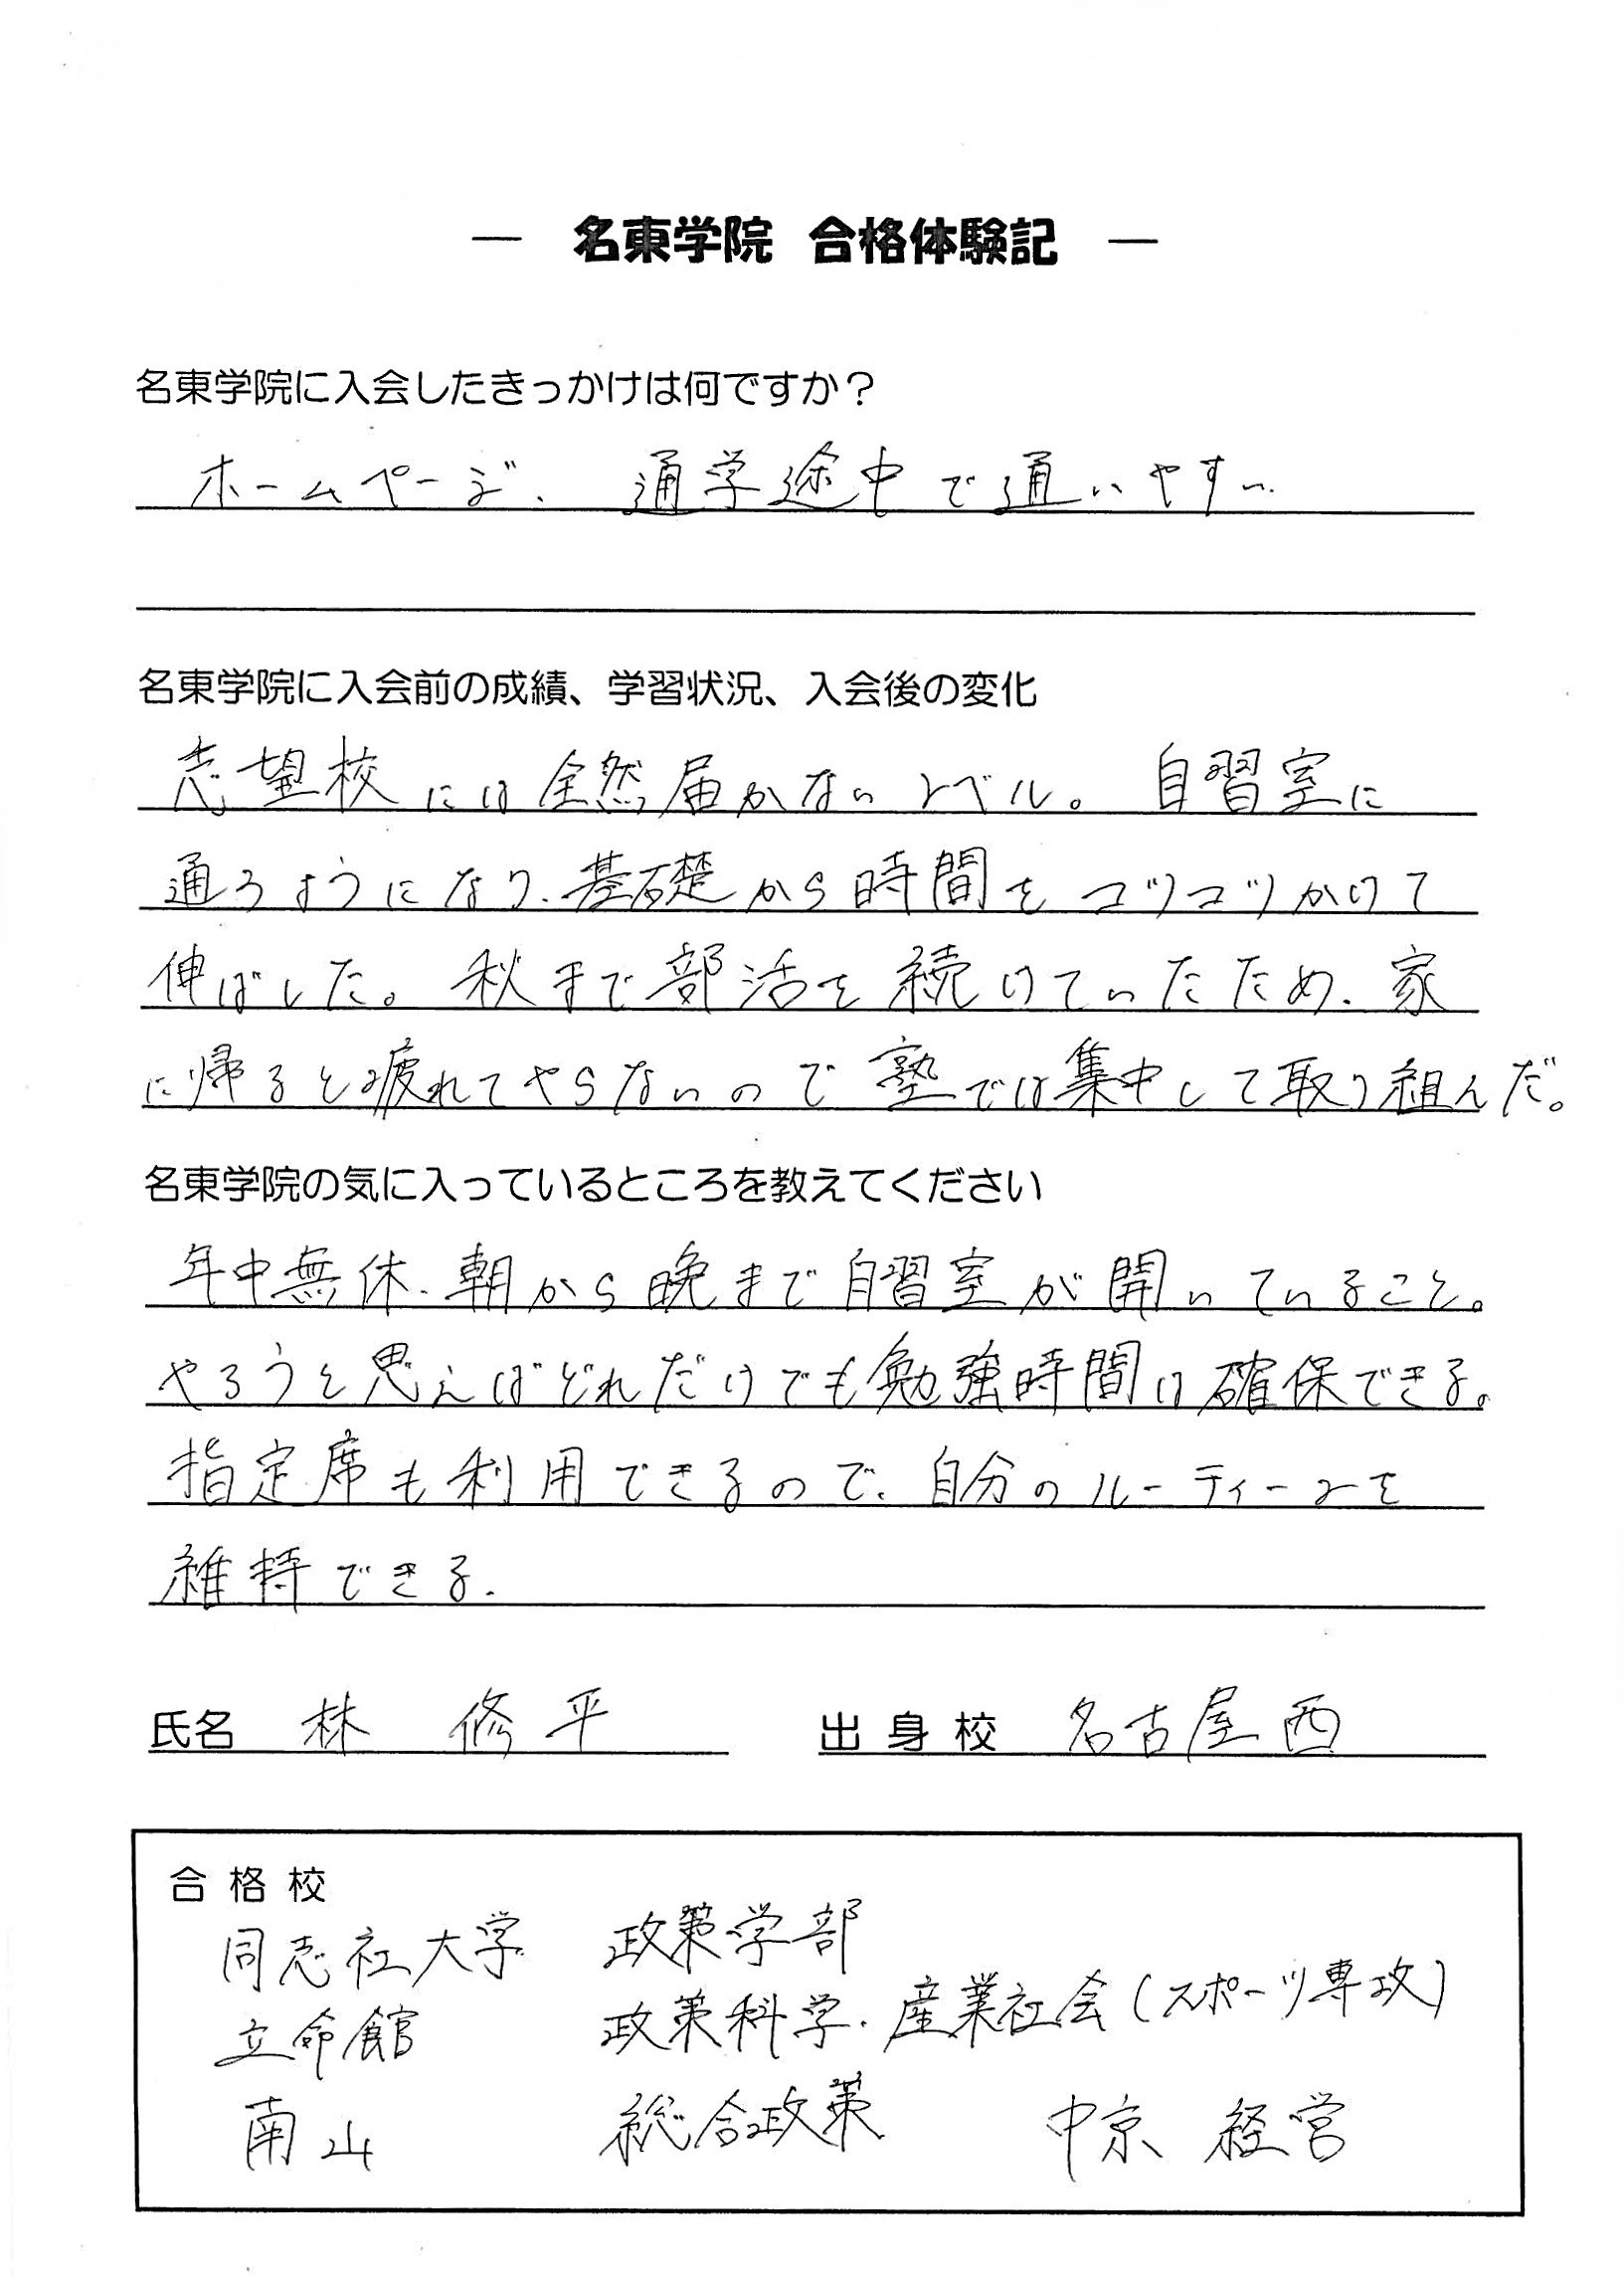 — 名東学院 合格体験記 —
名東学院に入会したきっかけは何ですか？
ホームページ、通学途中で通いやすい
名東学院に入会前の成績、学習状況、入会後の変化
志望校には全然届かないレベル。自習室に
通うようになり、基礎から時間をコツコツかけて
伸ばした。秋まで部活を続けていたため、家
に帰ると疲れてやらないので塾では集中して取り組んだ。
名東学院の気に入っているところを教えてください
年中無休、朝から晩まで自習室が開いていること。
やろうと思えばどれだけでも勉強時間は確保できる。
指定席も利用できるので、自分のルーティーンを
維持できる。
氏名 林 修平 出身校 名古屋西
合格校
同志社大学 政策学部
立命館 政策科学・産業社会（スポーツ専攻）
南山 総合政策 中京 経営